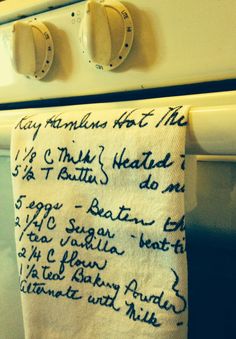 Kay Hamlins Hot
1 1/8 C Milk } Heated
5 1/2 T Butter } do
5 eggs - Beaten
2 1/4 C Sugar - beat
1 tea Vanilla
2 1/4 C flour
1 1/2 tea Baking Powder }
Alternate with Milk -